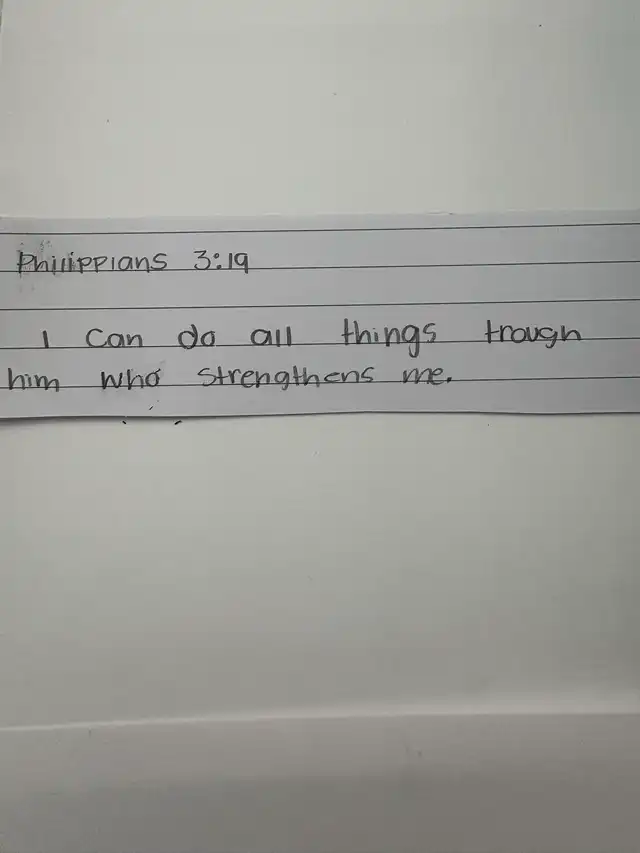 Philippians 3:19
I can do all things trough
him who strengthens me.